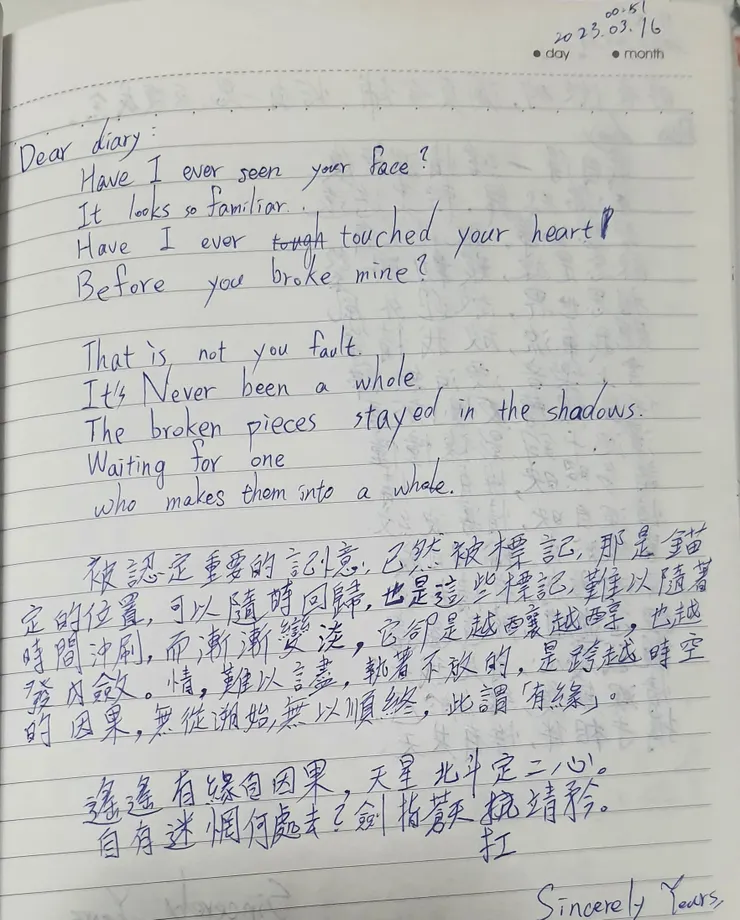 00:51
2023.03.16
day month
Dear diary:
Have I ever seen your face?
It looks so familiar..
Have I ever tough touched your heart
Before you broke mine?
That is not you fault.
It's Never been a whole.
The broken pieces stayed in the shadows.
Waiting for one
who makes them into a whole.
被認定重要的記憶,已然被標記,那是錨
定的位置,可以隨時回歸,也是這些標記,難以隨著
時間沖刷,而漸漸變淡,它卻是越釀越醇,也越
發內斂。情,難以言盡,執著不放的,是跨越時空
的因果,無從溯始,無以順終,此謂「有緣」。
遙遙有緣自因果,天星北斗定二心。
自有迷惘何處去?劍指蒼天 靖矜。
扛
Sincerely Yours,